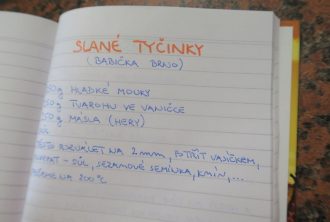 SLANÉ TYČINKY
(BABIČKA BRNO)
50 g HLADKÉ MOUKY
50 g TVAROHU VE VANIČCE
250 g MÁSLA (HERY)
ROZVÁLET NA 2mm, POTŘÍT VAJÍČKEM,
SŮL, SEZAMOVÉ SEMÍNKA, KMÍN, ...
NA 200°C